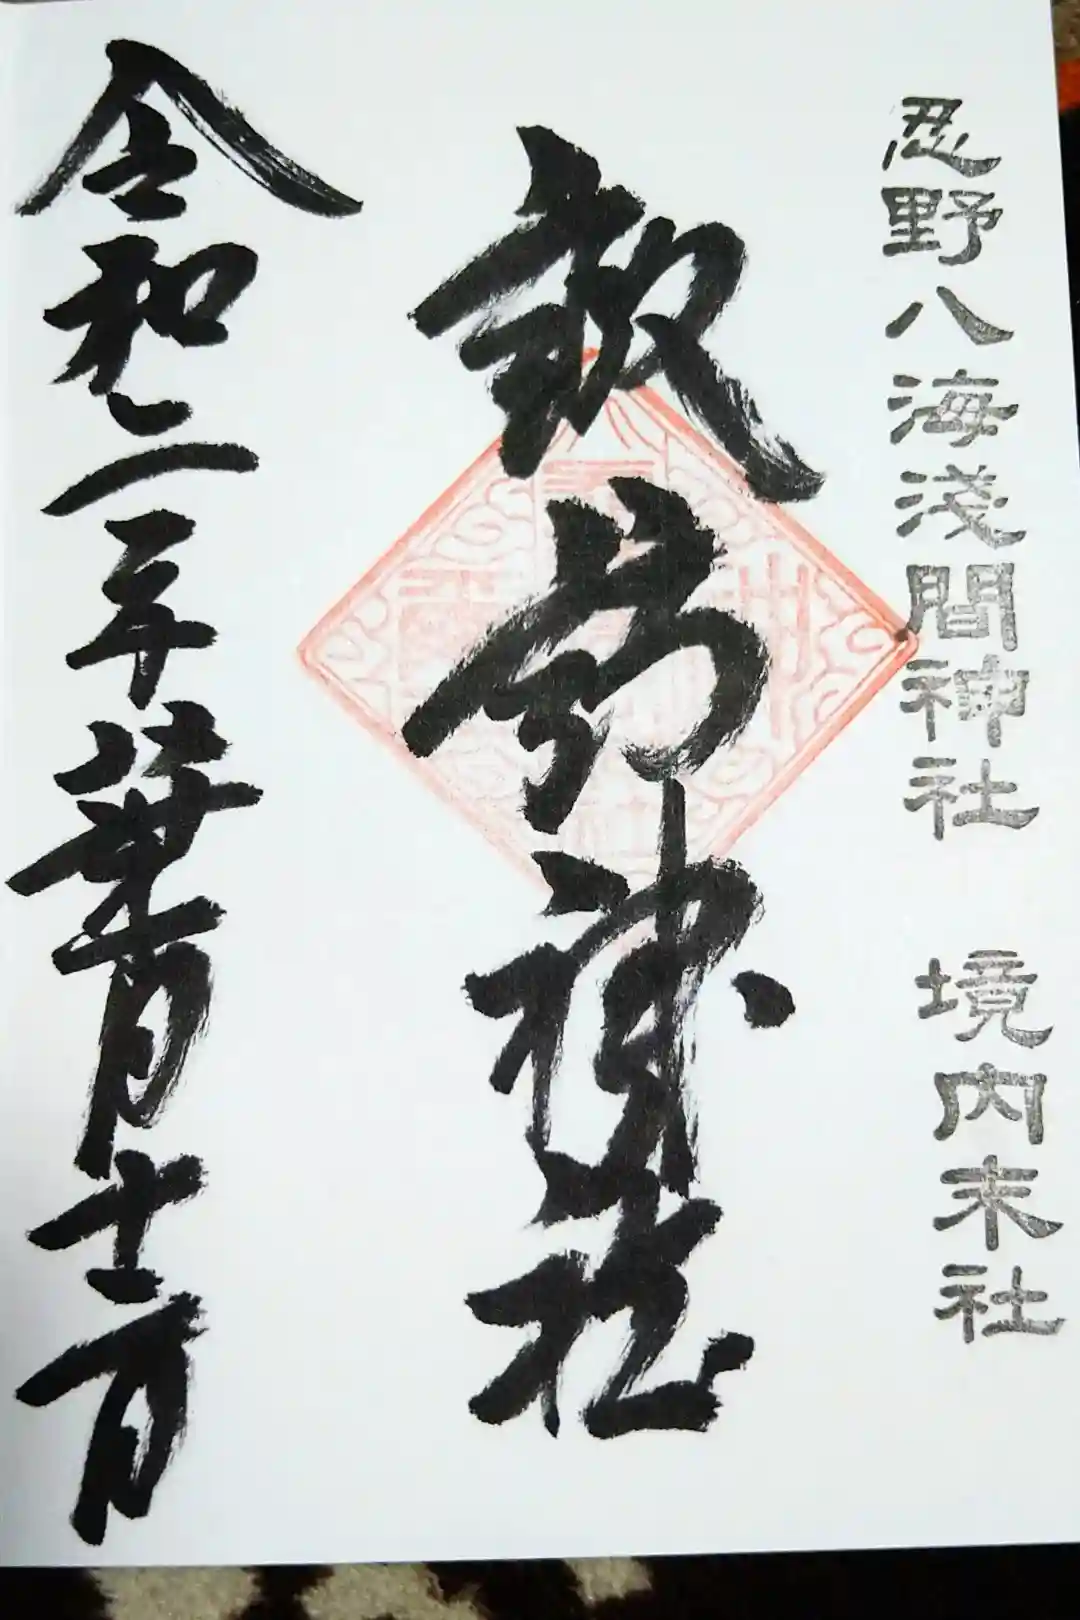 忍野八海淺間神社 境内末社
神社
令和二年葉月十一日